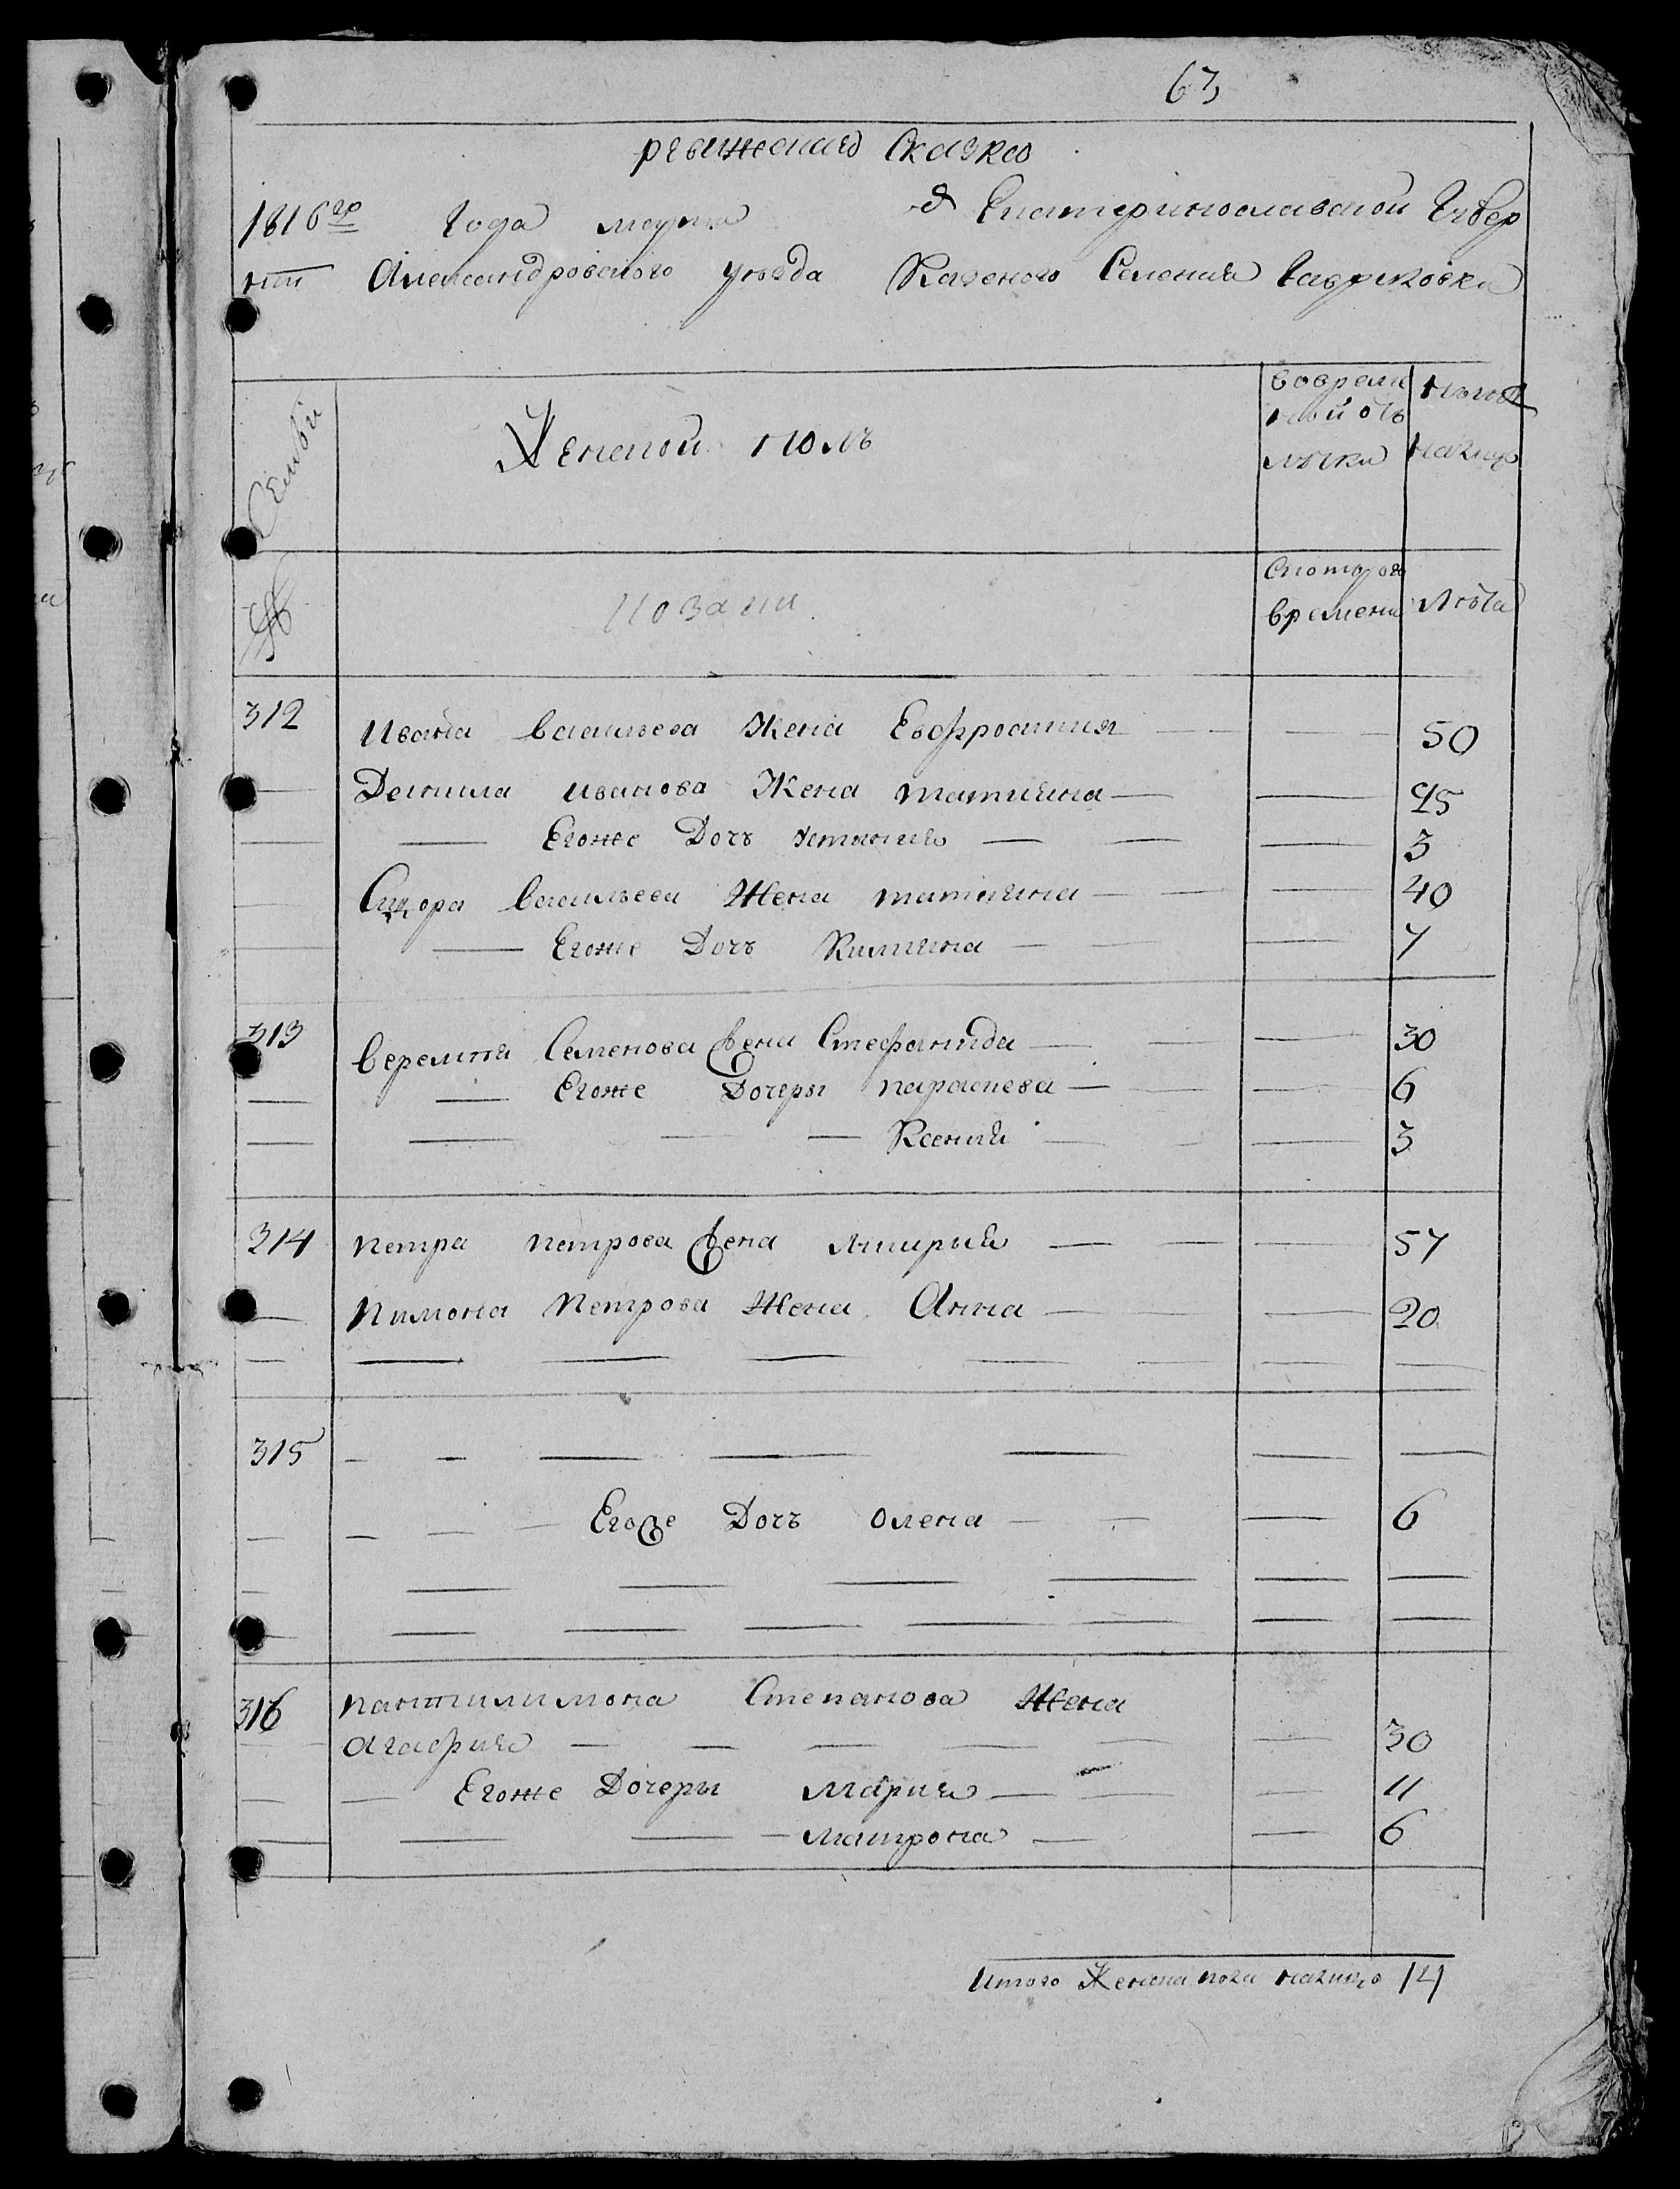 63
ревижская Сказка
1816го Года марта Екатеринославской Губер
нии Александровского уезда Казеного Селения Гавриловка
Семьи
Женской полъ
вовремен
ной отъ
лучки
ныне
налицо
№
Скоторого
времени
Лѣта
312 Ивана Васильева Жена Евфросиния 50
Данила иванова Жена татияна 25
Егоже Дочъ устиния 3
Сидора Васильева Жена татияна 40
Егоже Дочъ Килияна 7
313 Веремия Семенова Жена Стефанида 30
Егоже Дочеры параскева 6
Ксения 3
314 петра петрова Жена Мария 57
пимона петрова Жена Анна 20
315
Егоже Дочъ олена 6
316 пантилимона Степанова Жена
агафия 30
Егоже Дочеры Мария 11
матрона 6
Итого Женска пола налицо 14